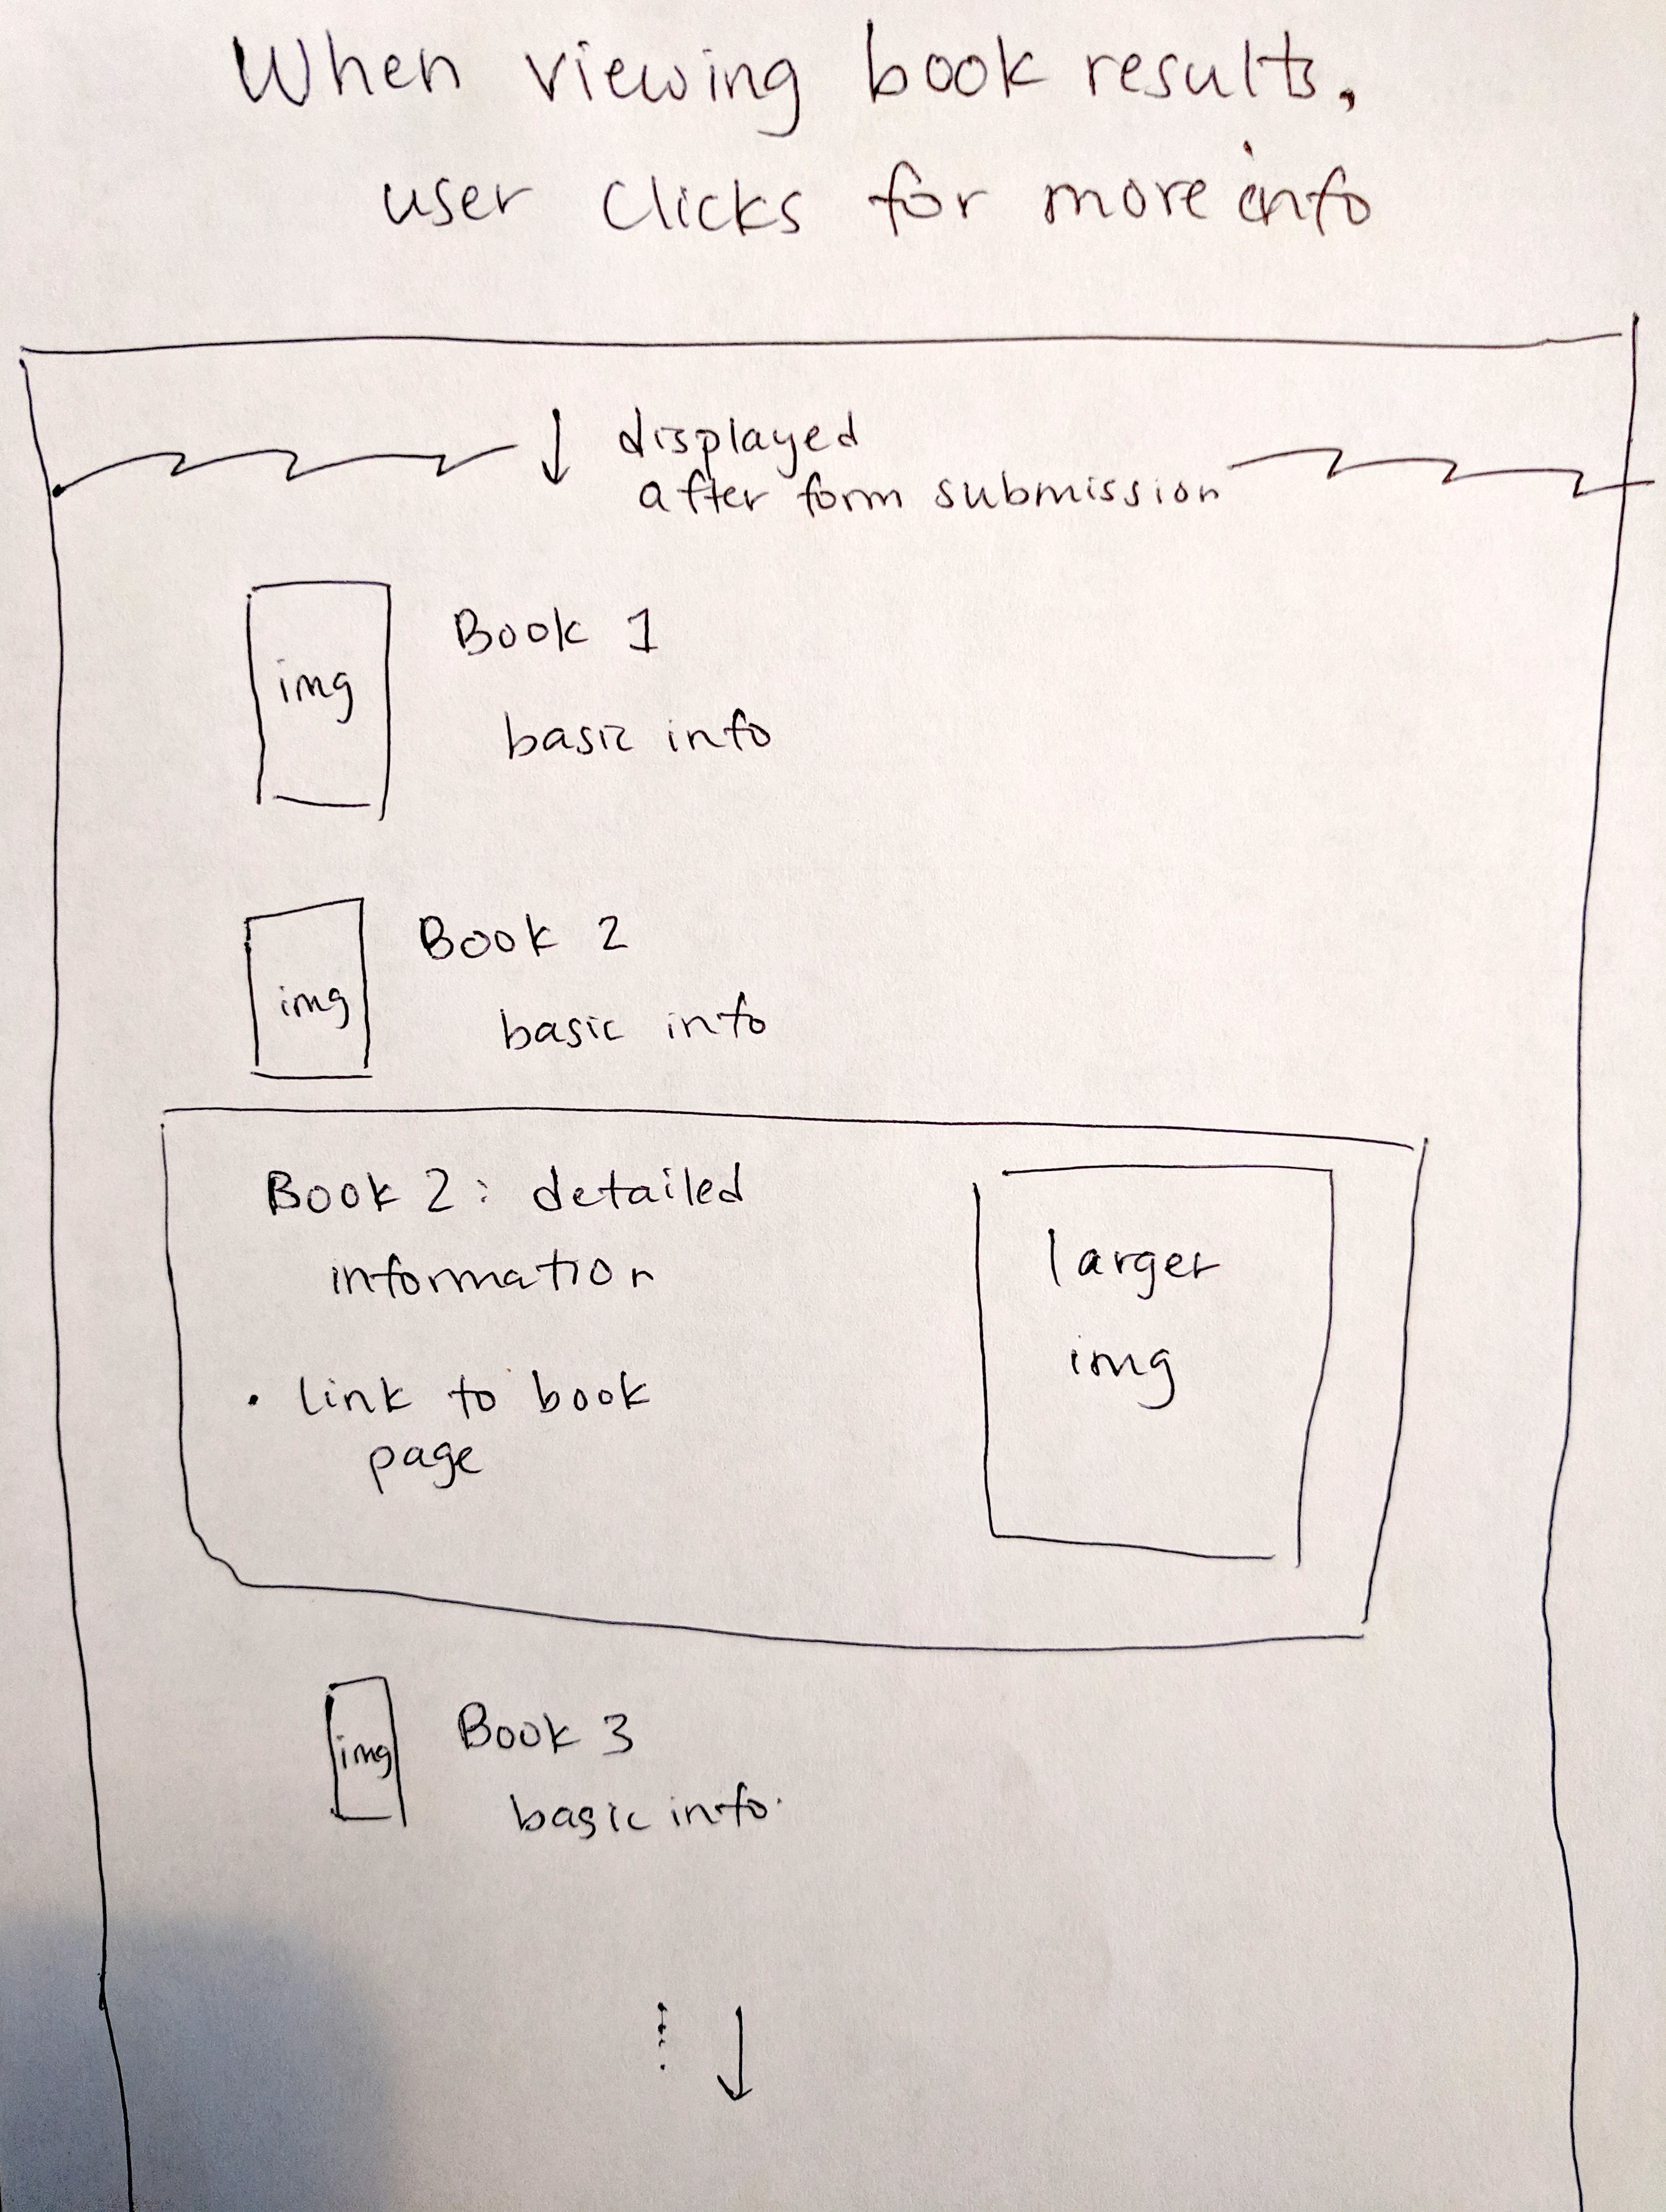 When viewing book results,
user clicks for more info
↓ displayed
after form submission
img
Book 1
basic info
img
Book 2
basic info
Book 2: detailed
information
• link to book
page
larger
img
img
Book 3
basic info.
⋮ ↓